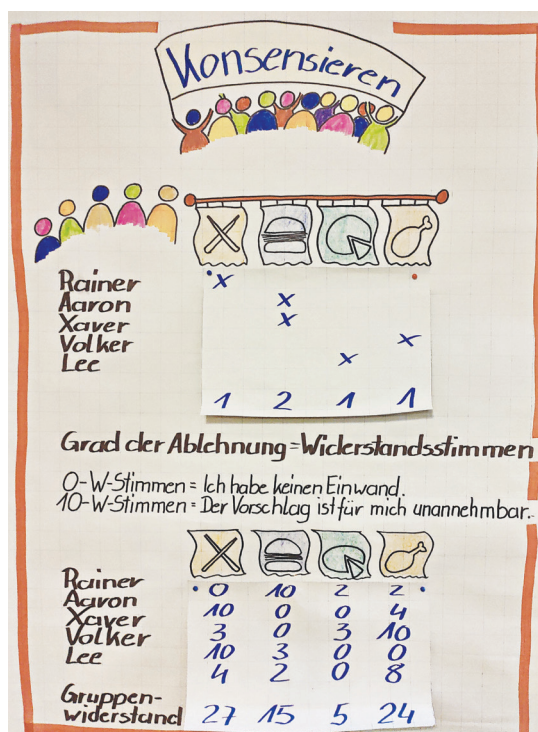 Konsensieren
Rainer x
Aaron x
Xaver x
Volker x
Lee x
1 2 1 1
Grad der Ablehnung = Widerstandsstimmen
0-W-Stimmen = Ich habe keinen Einwand.
10-W-Stimmen = Der Vorschlag ist für mich unannehmbar.
Rainer 0 10 2 2
Aaron 10 0 0 4
Xaver 3 0 3 10
Volker 10 3 0 0
Lee 4 2 0 8
Gruppen-
widerstand 27 15 5 24